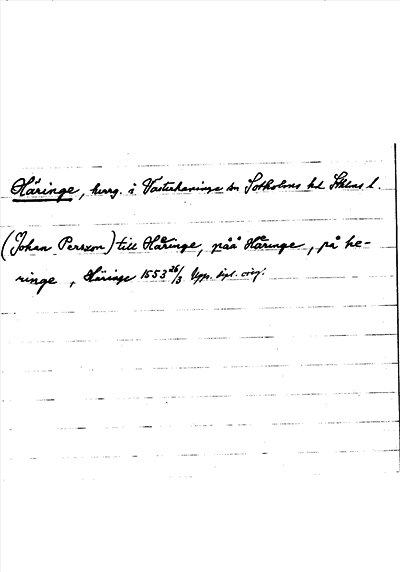 Häringe, herrg. i Västerhaninge sn Sotholms hd Sthlms l.
(Johan Persson) till Håringe, påå Håringe, på he-
ringe, Häringe 1553 26/3 Upps. dipl. orig.